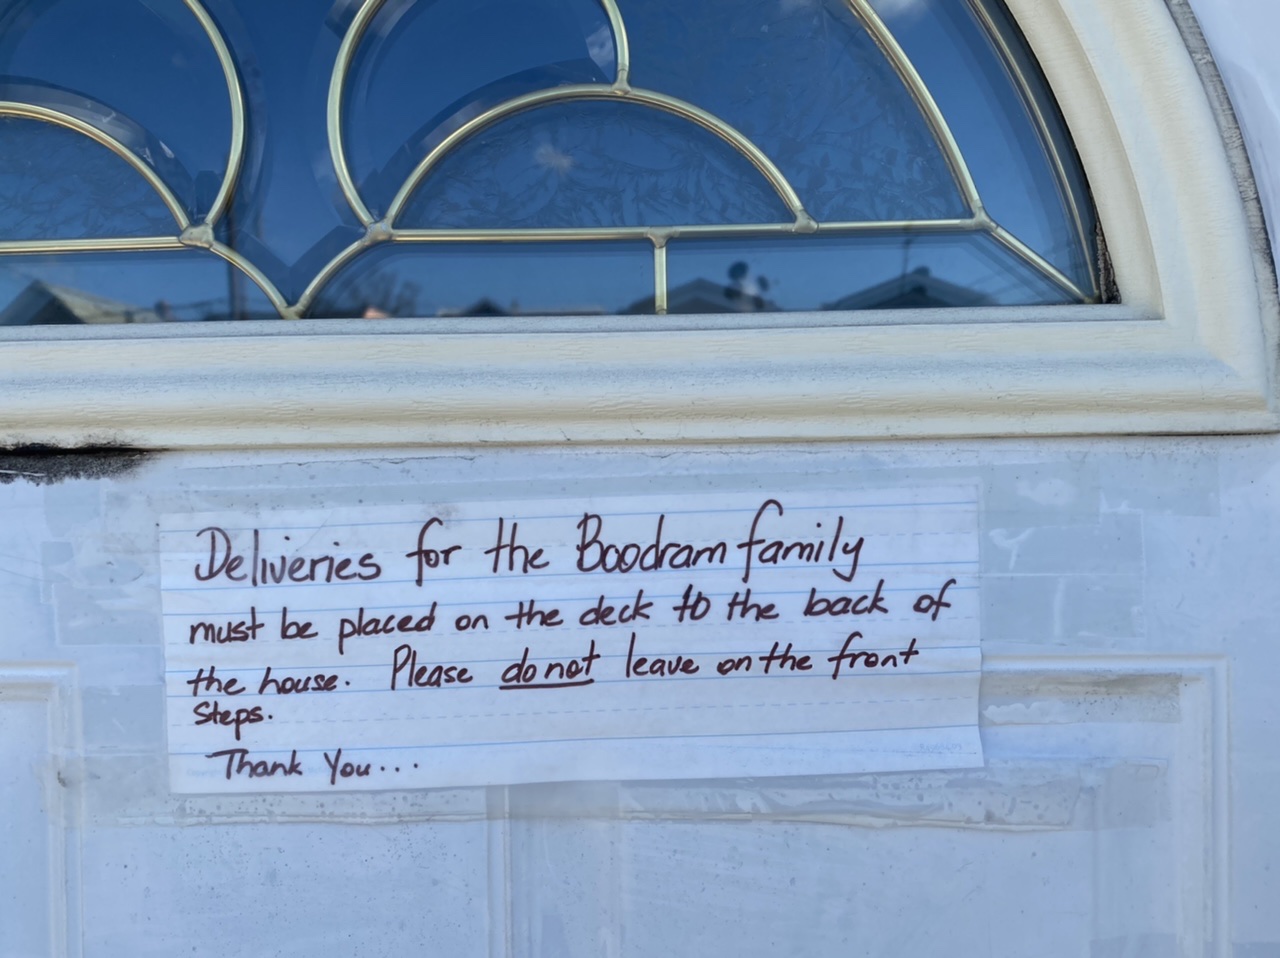 Deliveries for the Boodram family
must be placed on the deck to the back of
the house. Please do not leave on the front
steps.
Thank You...